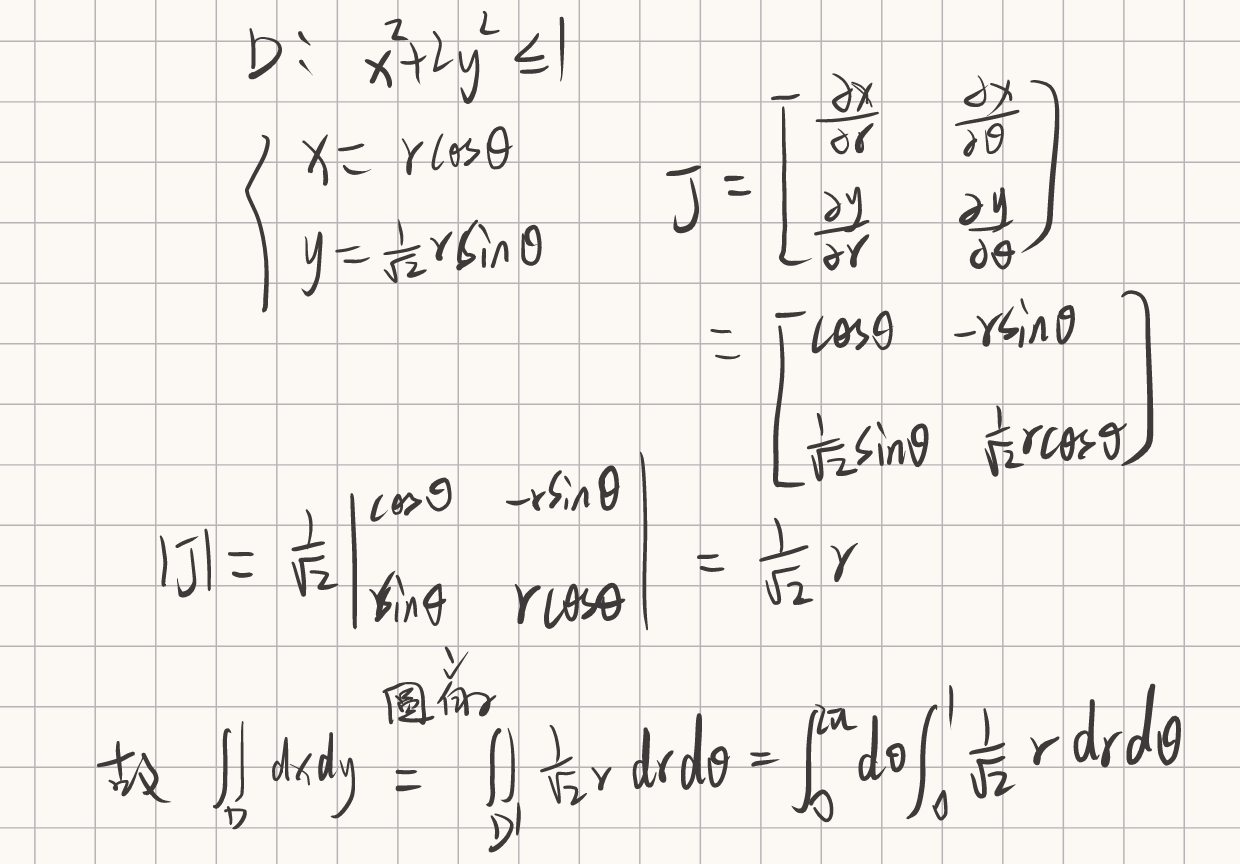 D: x²+2y² ≤ 1
{ x = r cosθ
y = 1/√2 r sinθ
J = [ ∂x/∂r ∂x/∂θ
∂y/∂r ∂y/∂θ ]
= [ cosθ -r sinθ
1/√2 sinθ 1/√2 r cosθ ]
|J| = 1/√2 | cosθ -r sinθ
sinθ r cosθ | = 1/√2 r
故 ∬_D dxdy = ∬_D' 1/√2 r drdθ = ∫_0^2π dθ ∫_0^1 1/√2 r drdθ